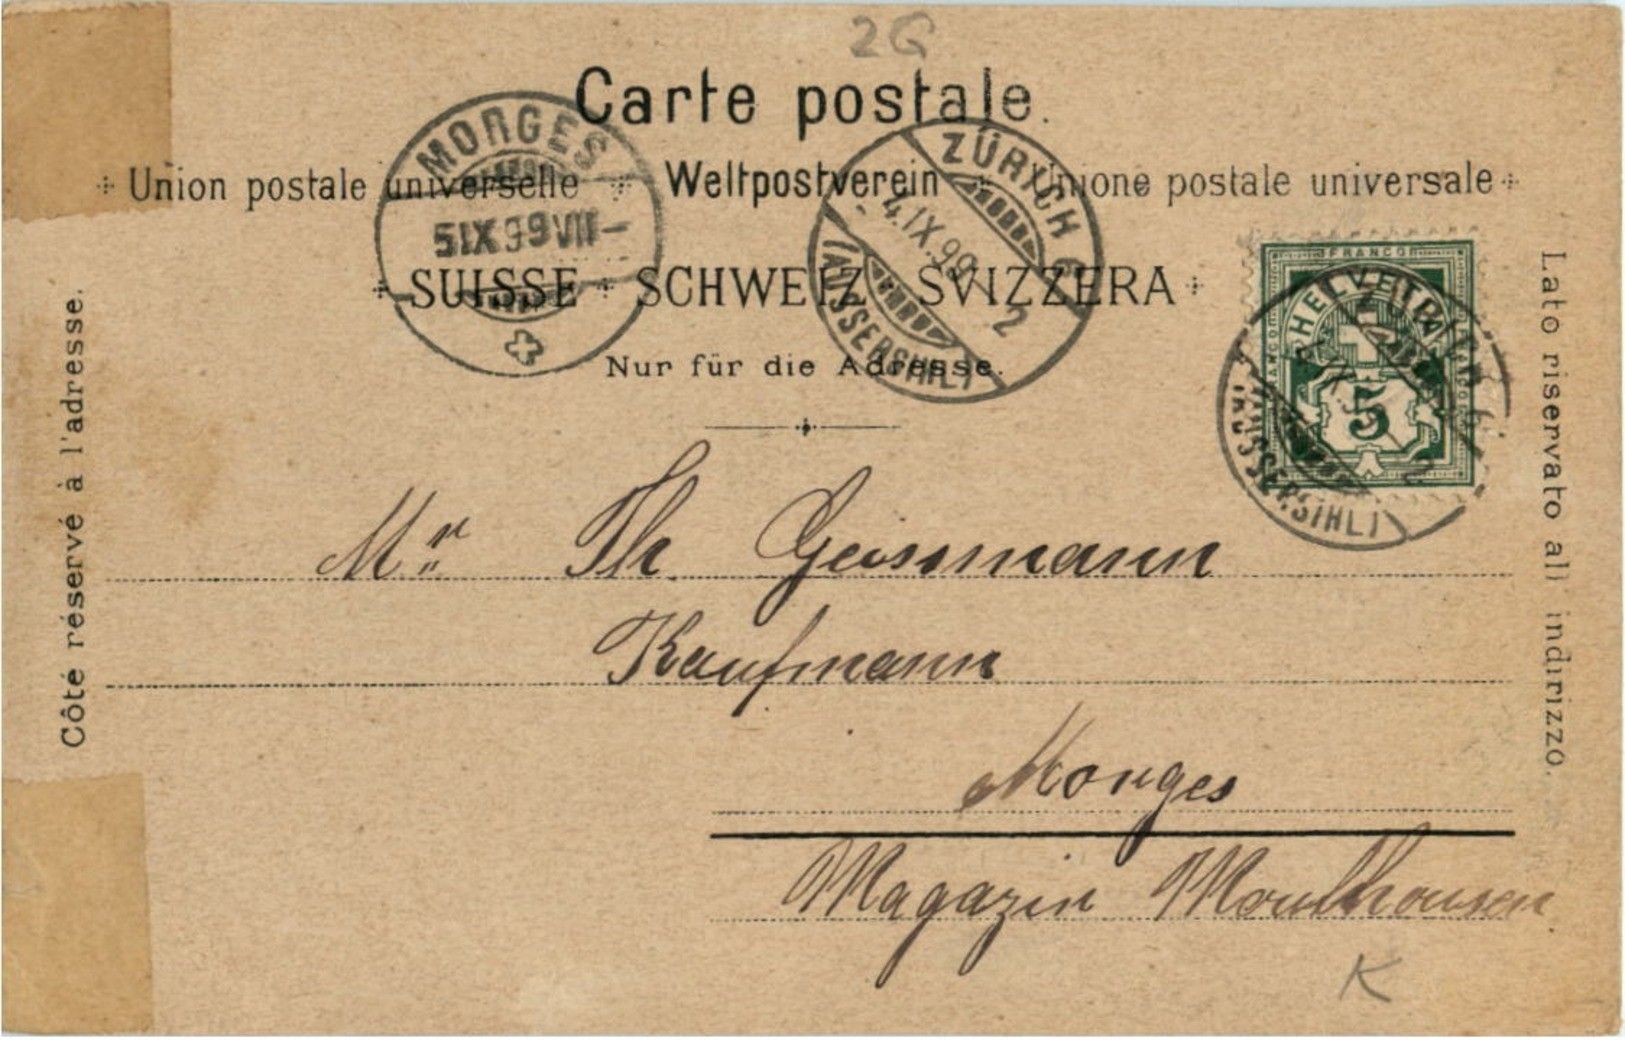 2G
Carte postale.
Union postale universelle Weltpostverein Unione postale universale
SUISSE SCHWEIZ SVIZZERA
Nur für die Adresse.
MORGES
5 IX 99 VII
ZÜRICH 6
4.IX.99
2
(AUSSERSIHL)
FRANCO
HELVETIA
5
(AUSSERSIHL)
Côté réservé à l'adresse.
Lato riservato all indirizzo.
Mr Th Geissmann
Kaufmann
Morges
Magazin Moulhousen
K